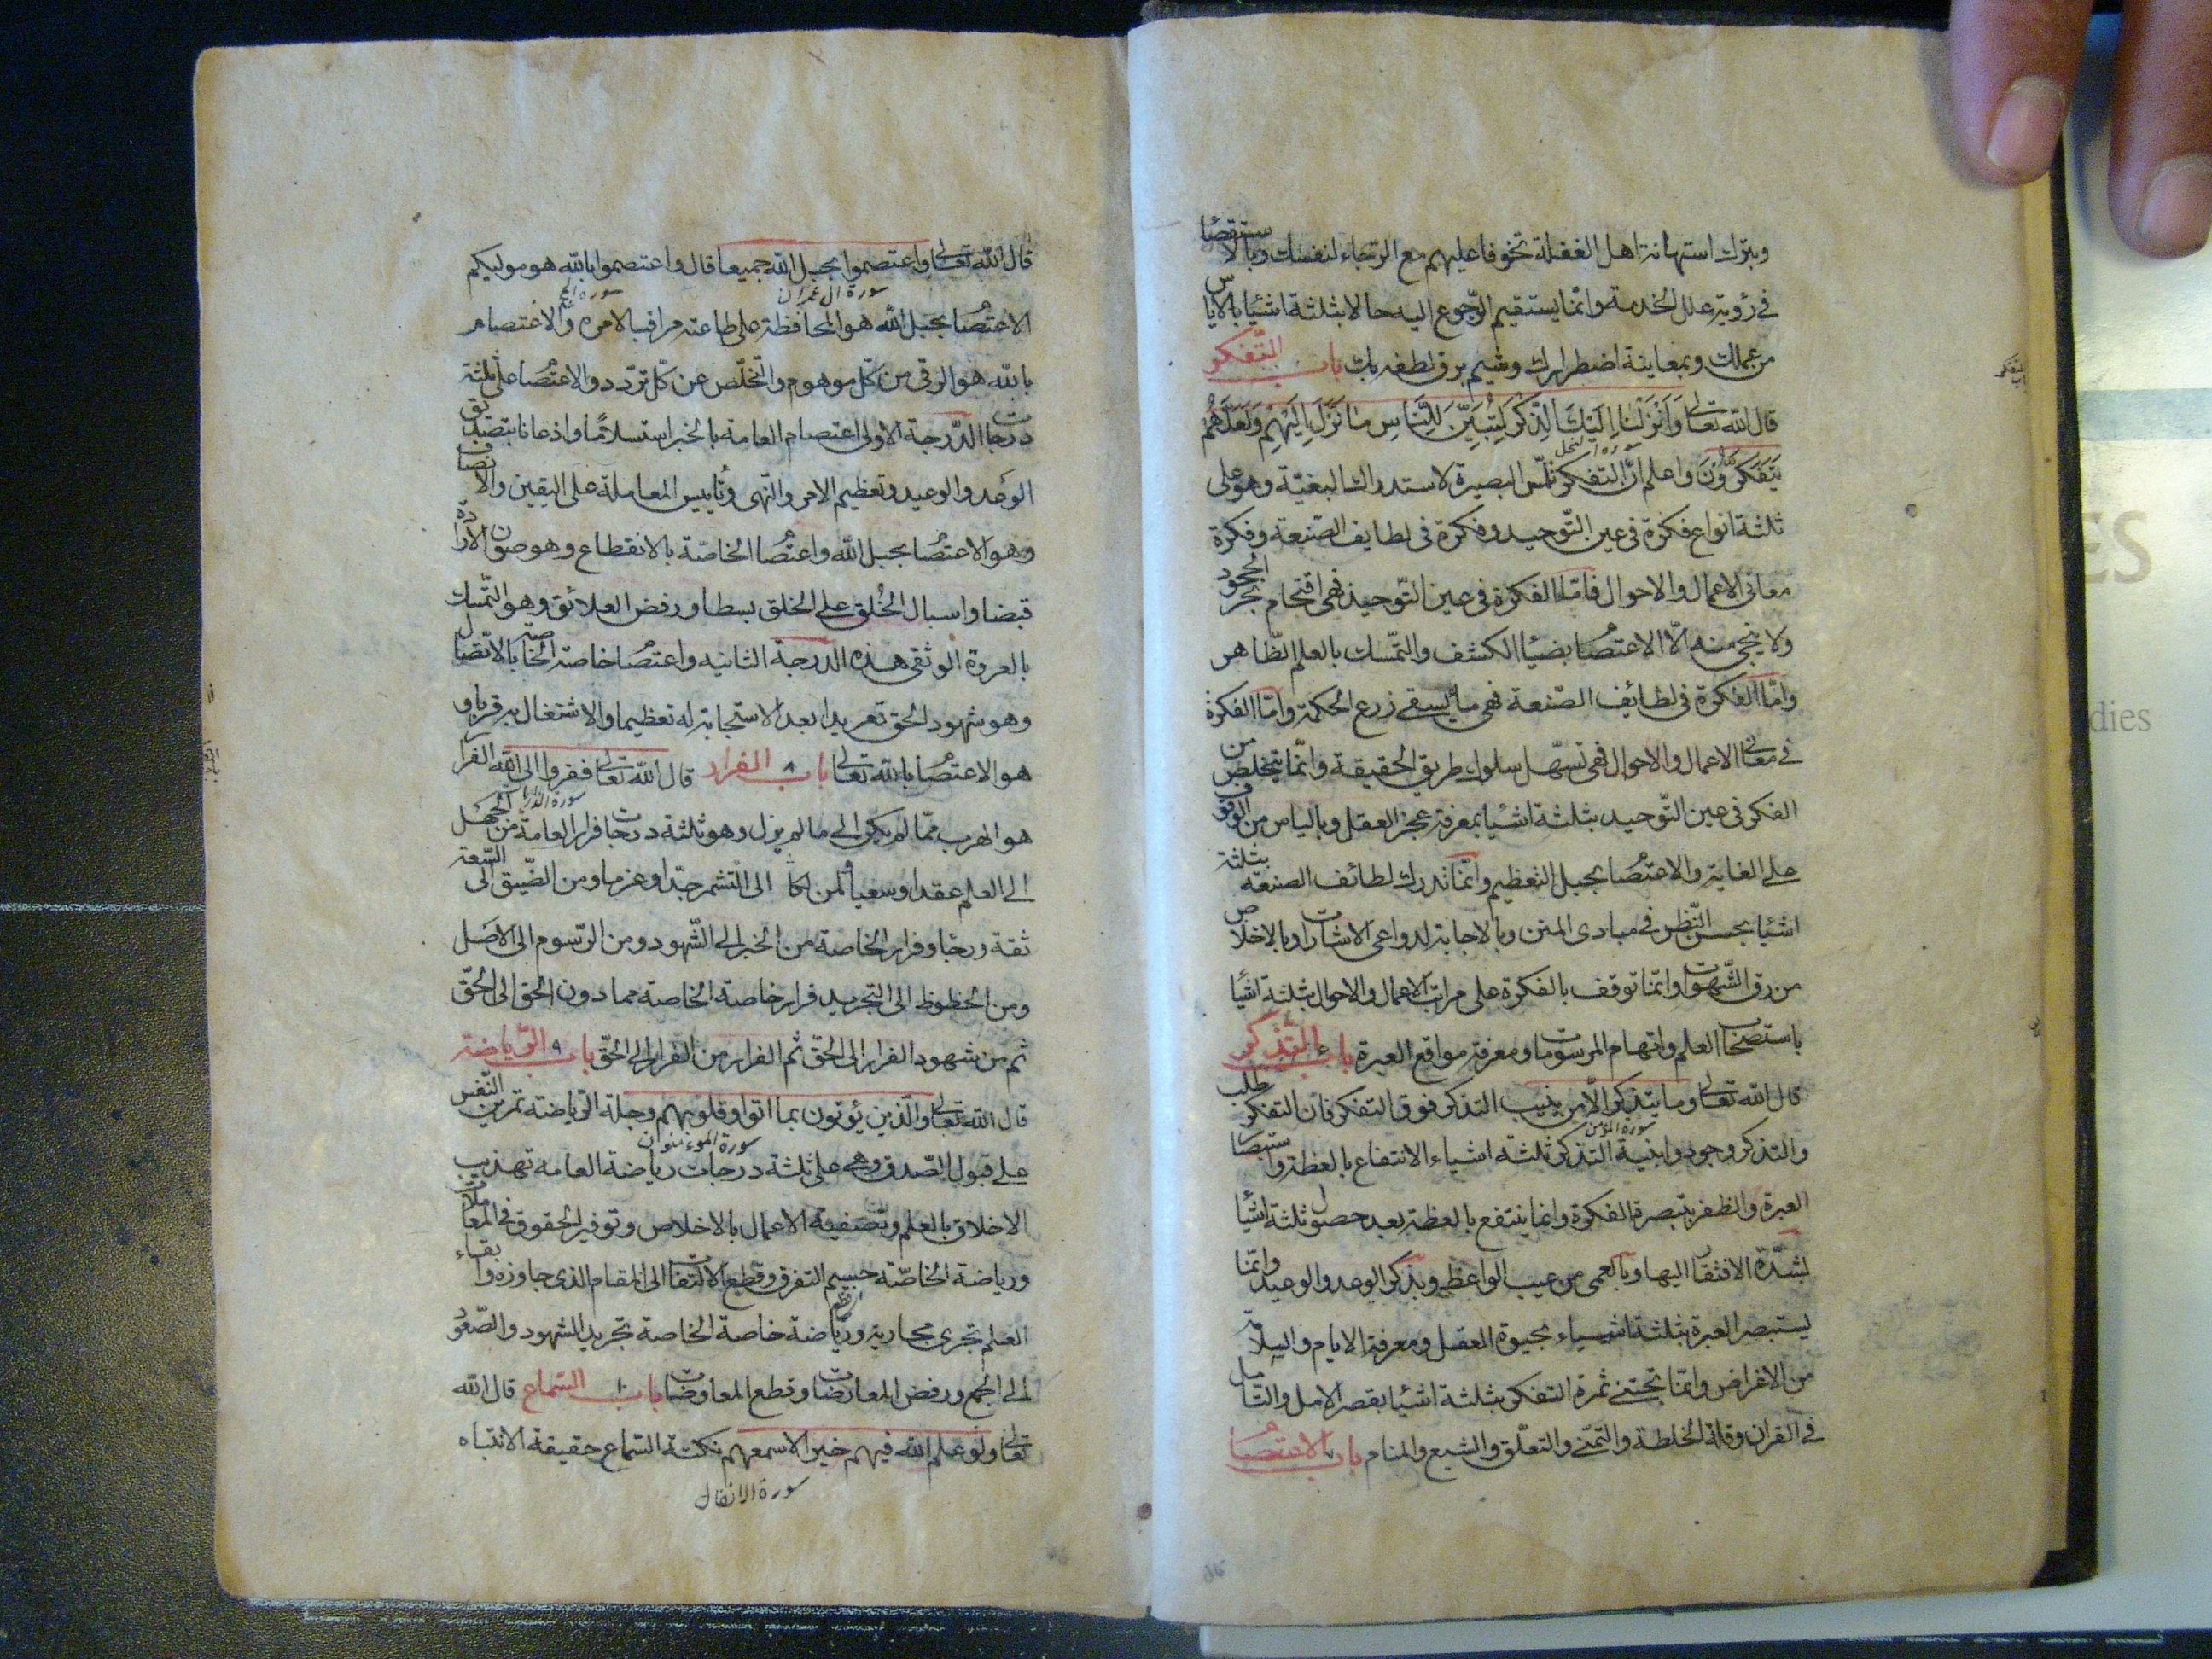 وبترك استهانة اهل الغفلة تخوفا عليهم مع الرجاء لنفسك وبالاستقصا
فى رؤية علل الخدمة وانما يستقيم الرجوع اليه حالا بثلثة اشيا بالاياس
من عملك وبمعاينة اضطرارك وشيم برق لطفه بك باب التفكر
قال الله تعالى وَاَنْزَلْنَا اِلَيْكَ الذِّكْرَ لِتُبَيِّنَ لِلنَّاسِ مَا نُزِّلَ اِلَيْهِمْ وَلَعَلَّهُمْ
يَتَفَكَّرُونَ واعلم ان التفكر تلمس البصيرة لاستدراك البغية وهو على
سورة النحل
ثلثة انواع فكرة فى عين التوحيد وفكرة فى لطايف الصنعة وفكرة
معانى الاعمال والاحوال فاما الفكرة فى عين التوحيد فهى اقتحام بحر الجحود
ولا ينجى منه الا الاعتصا بضيا الكشف والتمسك بالعلم الظاهر
واما الفكرة فى لطائف الصنعة فهى ما يسقى زرع الحكمة واما الفكرة
فى معانى الاعمال والاحوال فهى تسهل سلوك طريق الحقيقة وانما يتخلص من
الفكر فى عين التوحيد بثلثة اشيا بمعرفة عجز العقل وبالياس من الوقوف
على الغاية والاعتصا بحبل التعظيم وانما تدرك لطائف الصنعة بثلثة
اشيا بحسن النظر فى مبادى المنن وبالاجابة لدواعى الاشارات وبالاخلاص
من رق الشهوات وانما توقف بالفكرة على مراتب الاعمال والاحوال بثلثة اشيا
باستصحاب العلم واتهام المرسومات ومعرفة مواقع العبرة باب التذكر
قال الله تعالى وما يتذكر الا من ينيب التذكر فوق التفكر فان التفكر طلب
سورة المؤمن
والتذكر وجود وابنية التذكر ثلثة اشياء الانتفاع بالعظة واستبصا
العبرة والظفر بتبصرة الفكرة وانما ينتفع بالعظة بعد حصول ثلثة اشيا
لشدة الافتقار اليها وبالعمى من عيب الواعظ وبذكر الوعد والوعيد وانما
يستبصر العبرة بثلثة اشياء بحيوة العقل ومعرفة الايام والسلامة
من الاغراض وانما تجتنى ثمرة التفكر بثلثة اشيا بقصر الامل والتامل
فى القران وقلة الخلطة والتمنى والتعلق والشبع والمنام باب الاعتصا
قال الله تعالى واعتصموا بحبل الله جميعا قال واعتصموا بالله هو موليكم
سورة ال عمران سورة الحج
الاعتصا بحبل الله هو المحافظة على طاعته مراقبا لامره والاعتصام
بالله هو الرقى من كل موهوم والتخلص عن كل تردد والاعتصا على ثلثة
درجات الدرجة الاولى اعتصام العامة بالخبر استسلاما واذعانا بتصديق
الوعد والوعيد وتعظيم الامر والنهى وتاسيس المعاملة على اليقين والانصاف
وهو الاعتصا بحبل الله واعتصا الخاصة بالانقطاع وهو صون الارادة
قبضا واسبال الخلق على الخلق بسطا ورفض العلائق وهو التمسك
بالعروة الوثقى هذه الدرجة الثانيه واعتصا خاصة الخاصة بالاتصال
وهو شهود الحق تفريدا بعد الاستحابة له تعظيما والاشتغال به قربا و
هو الاعتصا بالله تعالى باب ٨ الفرار قال الله تعالى ففروا الى الله الفرار
سورة الذاريات
هو الهرب مما لم يكن الى ما لم يزل وهو ثلثة درجات فرار العامة من الجهل
الى العلم عقدا وسعيا ومن الى التشمر جدا وعزما ومن الضيق الى السعة
ثقة ورجا وفرار الخاصة من الخبر الى الشهود ومن الرسوم الى الاصل
ومن الحظوظ الى التجريد فرار خاصة الخاصة مما دون الحق الى الحق
ثم من شهود الفرار الى الحق ثم الفرار من الفرار الى الحق باب ٩ الرياضة
قال الله تعالى والذين يؤتون بما اتوا وقلوبهم وجلة الرياضة تمرين النفس
سورة الموءمنون
على قبول الصدق وهى على ثلثة درجات رياضة العامه تهذيب
الاخلاق بالعلم وتصفية الاعمال بالاخلاص وتوفير الحقوق فى المعاملات
ورياضة الخاصة حسم التفرق وقطع الالتفات الى المقام الذى جاوزه وابقاء
العلم تجرى مجاريه ورياضة خاصة الخاصة تجريد الشهود والصعود
الى الجمع ورفض المعارضات وقطع المعاوضات باب ١٠ السماع قال الله
تعالى ولو علم الله فيهم خيرا لاسمعهم نكتة السماع حقيقة الانتباه
سورة الانفال